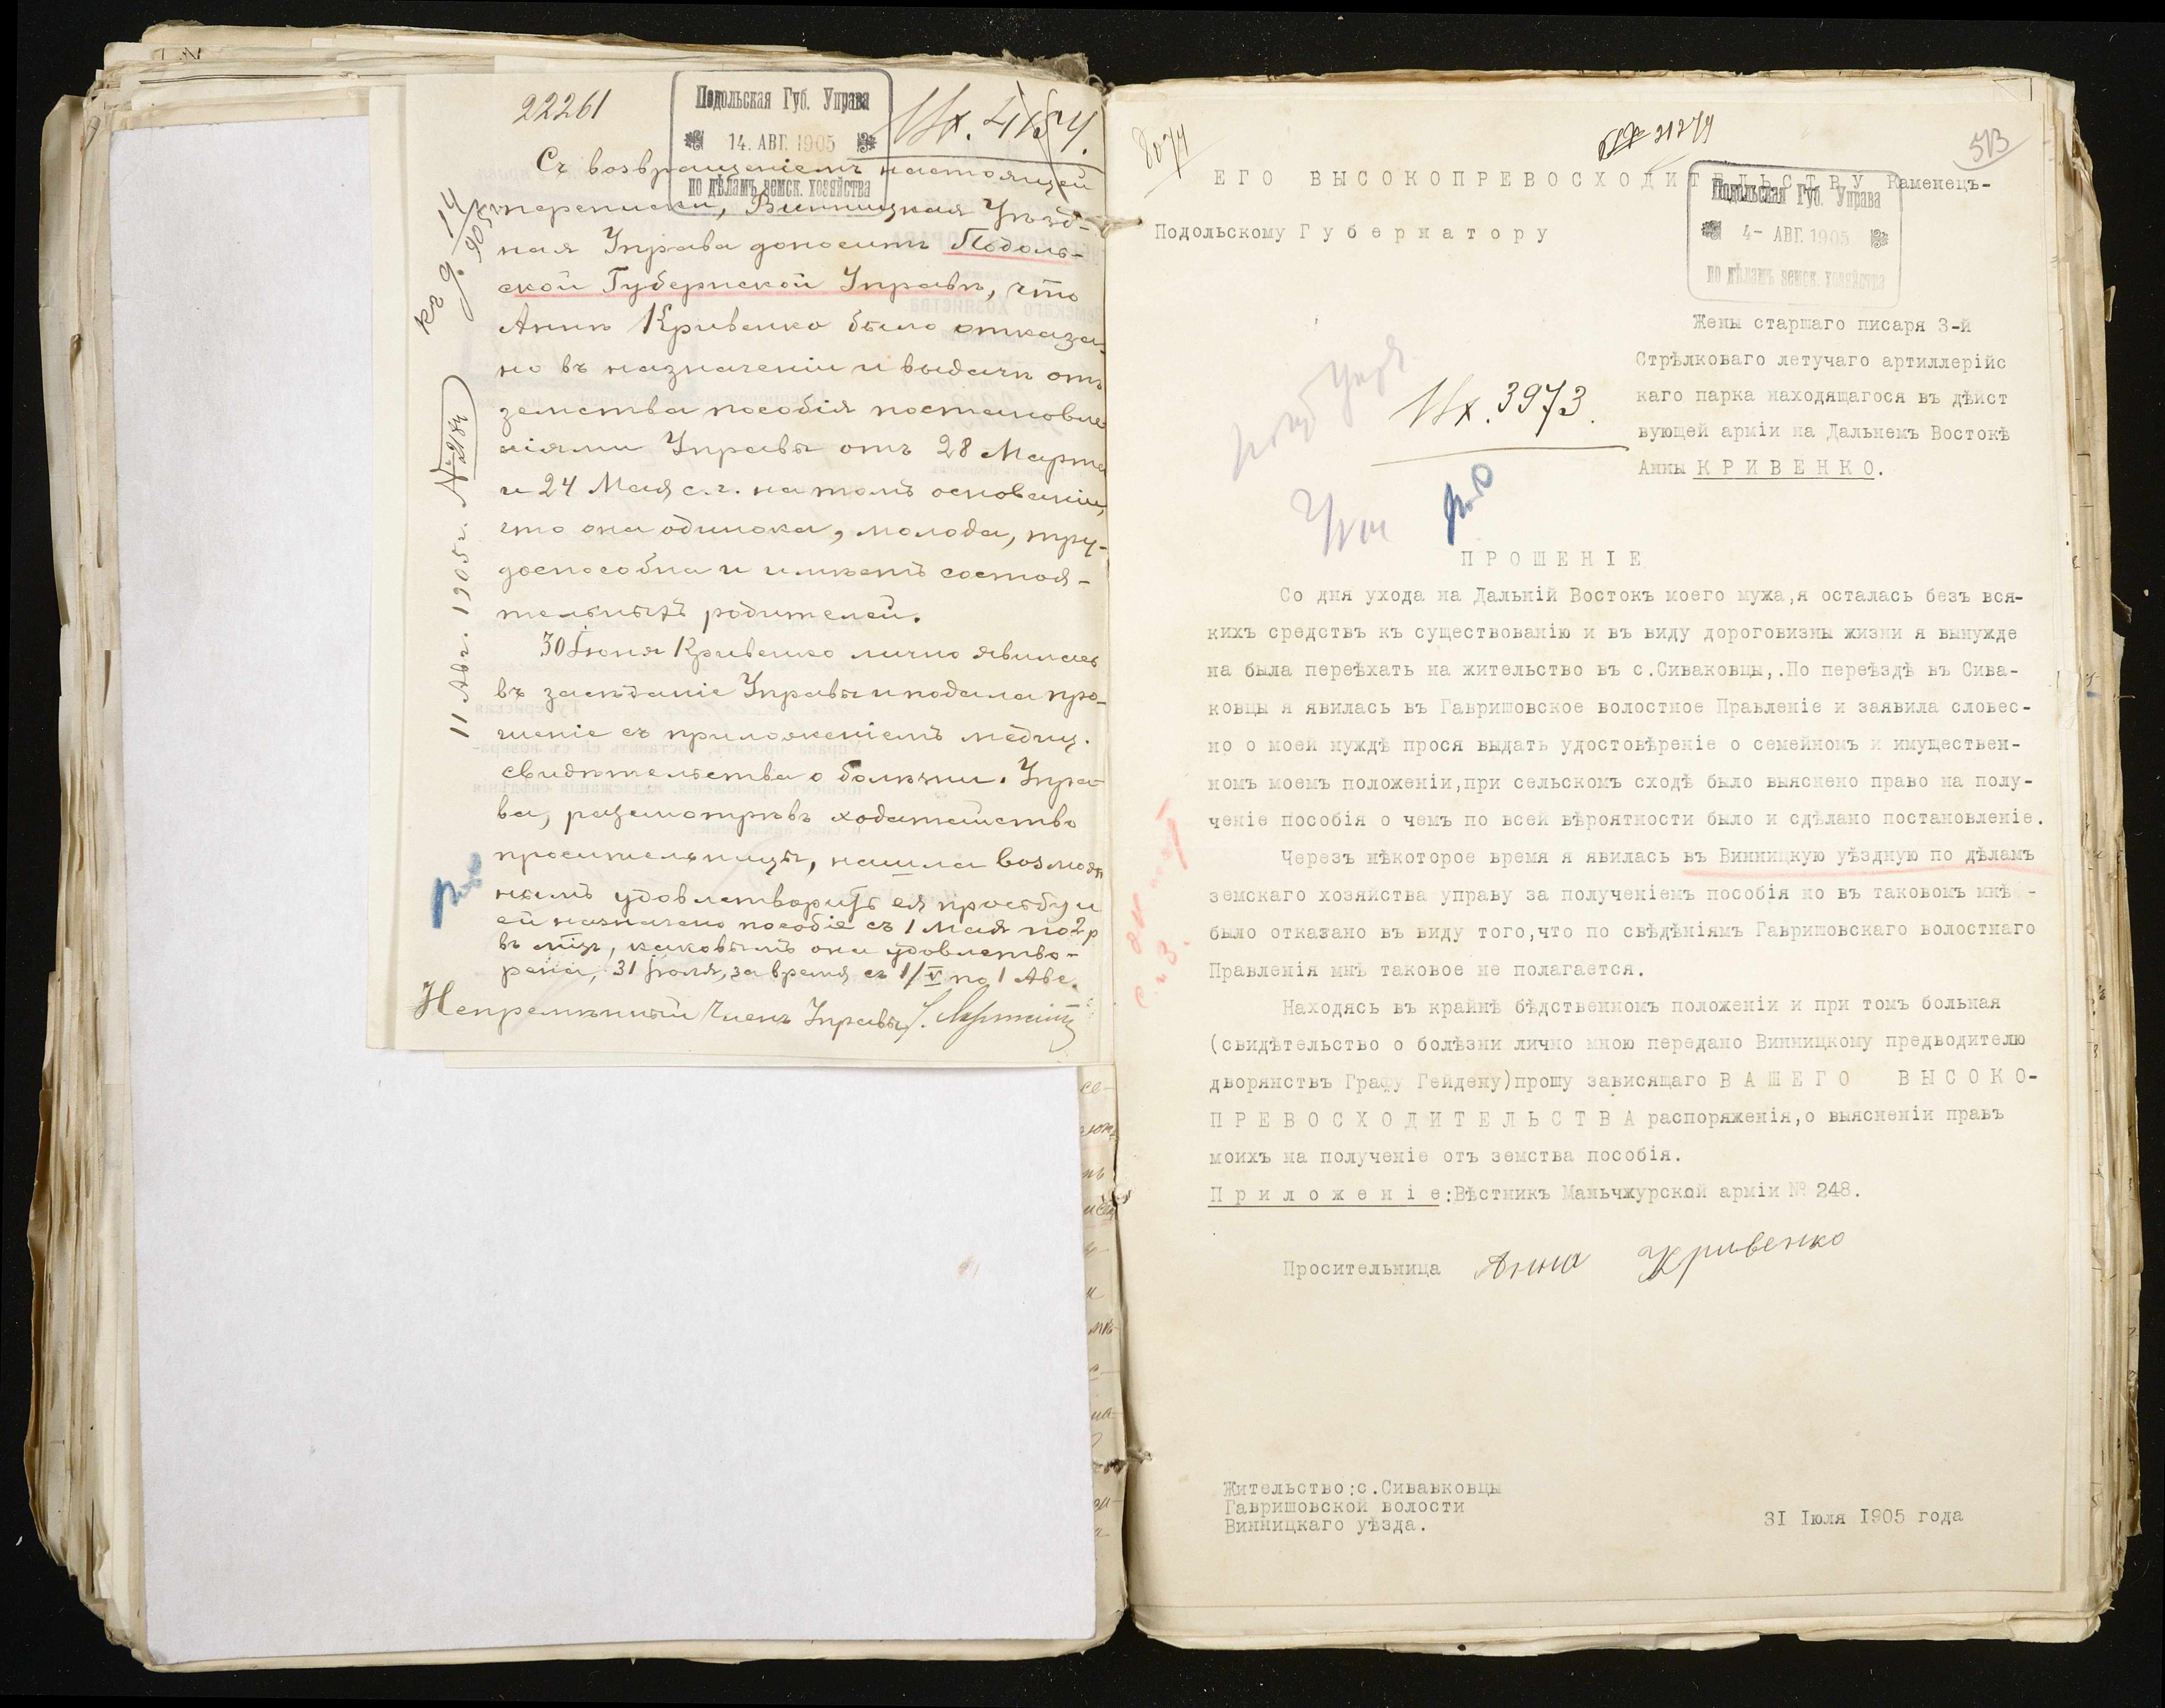 22261
Подольская Губ. Управа
14. АВГ. 1905
по дѣламъ земск. хозяйства
Вх. 4154.
Съ возвращеніемъ настоящей
переписки, Винницкая Уѣзд-
ная Управа доноситъ Подоль-
ской Губернской Управѣ, что
Аннѣ Кривенко было отказа-
но въ назначеніи и выдачѣ отъ
земства пособія постановле-
ніями Управы отъ 28 Марта
и 24 Мая с.г. на томъ основаніи,
что она одинока, молода, тру-
доспособна и имѣетъ состоя-
тельныхъ родителей.
30 Іюня Кривенко лично явилась
въ засѣданіе Управы и подала про-
шеніе съ приложеніемъ медиц.
свидѣтельства о болѣзни. Упра-
ва, разсмотрѣвъ ходатайство
просительницы, нашла возмож-
нымъ удовлетворить ея просьбу и
ей назначено пособіе съ 1 Мая по 2 р
въ мѣц, каковымъ она удовлетво-
рена, 31 Іюля, за время съ 1/V по 1 Авг.
Непремѣнный Членъ Управы
11 Авг. 1905 г. №
8074
21279
513
ЕГО ВЫСОКОПРЕВОСХОДИТЕЛЬСТВУ Каменецъ-
Подольскому Губернатору
Подольская Губ. Управа
4- АВГ. 1905
по дѣламъ земск. хозяйства
Жены старшаго писаря 3-й
Стрѣлковаго летучаго артиллерійс
каго парка находящагося въ дѣйст
вующей арміи на Дальнемъ Востокѣ
Анны КРИВЕНКО.
Вх. 3973.
ПРОШЕНІЕ
Со дня ухода на Дальній Востокъ моего мужа,я осталась безъ вся-
кихъ средствъ къ существованію и въ виду дороговизны жизни я вынужде
на была переѣхать на жительство въ с.Сиваковцы,.По переѣздѣ въ Сива-
ковцы я явилась въ Гавришовское волостное Правленіе и заявила словес-
но о моей нуждѣ прося выдать удостовѣреніе о семейномъ и имуществен-
номъ моемъ положеніи,при сельскомъ сходѣ было выяснено право на полу-
ченіе пособія о чемъ по всей вѣроятности было и сдѣлано постановленіе.
Черезъ нѣкоторое время я явилась въ Винницкую уѣздную по дѣламъ
земскаго хозяйства управу за полученіемъ пособія но въ таковомъ мнѣ -
было отказано въ виду того,что по свѣдѣніямъ Гавришовскаго волостнаго
Правленія мнѣ таковое не полагается.
Находясь въ крайнѣ бѣдственномъ положеніи и при томъ больная
(свидѣтельство о болѣзни лично мною передано Винницкому предводителю
дворянствъ Графу Гейдену)прошу зависящаго ВАШЕГО ВЫСОКО-
ПРЕВОСХОДИТЕЛЬСТВА распоряженія,о выясненіи правъ
моихъ на полученіе отъ земства пособія.
Приложеніе:Вѣстникъ Маньчжурской арміи № 248.
Просительница Анна Кривенко
Жительство:с.Сивавковцы
Гавришовской волости
Винницкаго уѣзда.
31 Іюля 1905 года